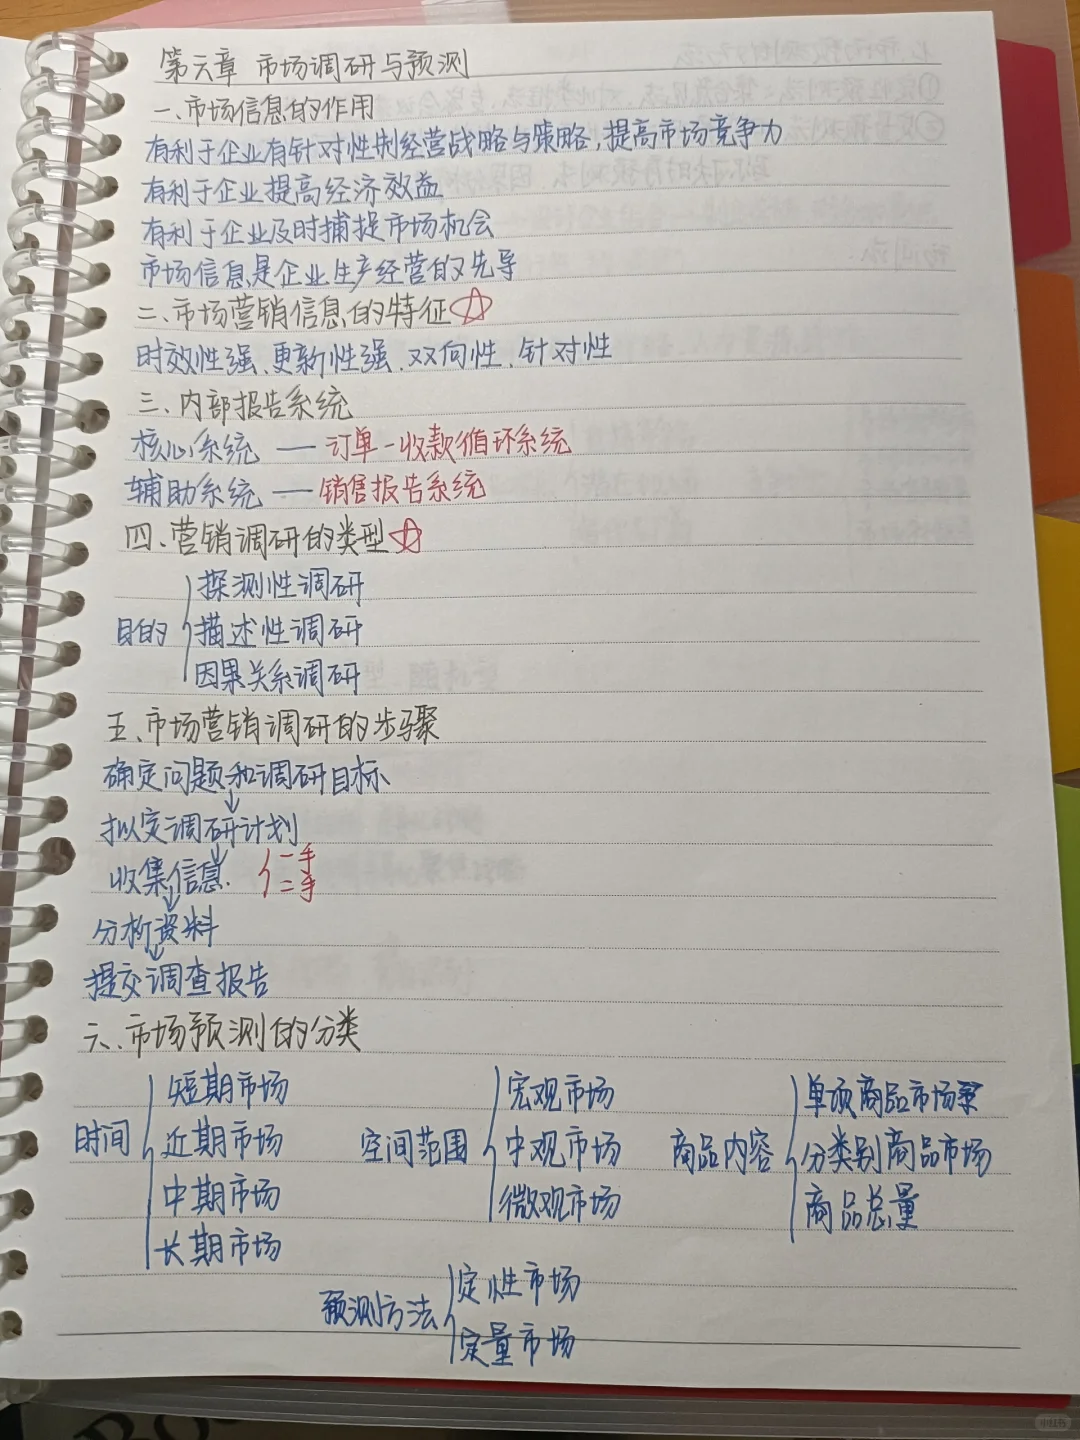 第六章 市场调研与预测
一、市场信息的作用
有利于企业有针对性制经营战略与策略,提高市场竞争力
有利于企业提高经济效益
有利于企业及时捕捉市场机会
市场信息是企业生产经营的先导
二、市场营销信息的特征☆
时效性强、更新性强、双向性、针对性
三、内部报告系统
核心系统 — 订单-收款循环系统
辅助系统 — 销售报告系统
四、营销调研的类型☆
目的
探测性调研
描述性调研
因果关系调研
五、市场营销调研的步骤
确定问题和调研目标
↓
拟定调研计划
↓
收集信息. 一手
二手
↓
分析资料
↓
提交调查报告
六、市场预测的分类
时间
短期市场
近期市场
中期市场
长期市场
空间范围
宏观市场
中观市场
微观市场
商品内容
单项商品市场
分类别商品市场
商品总量
预测方法
定性市场
定量市场
小红书